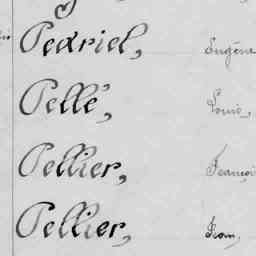 Pedriel, Eugène
Pellé, Louis,
Pellier, François
Pellier, Jean,